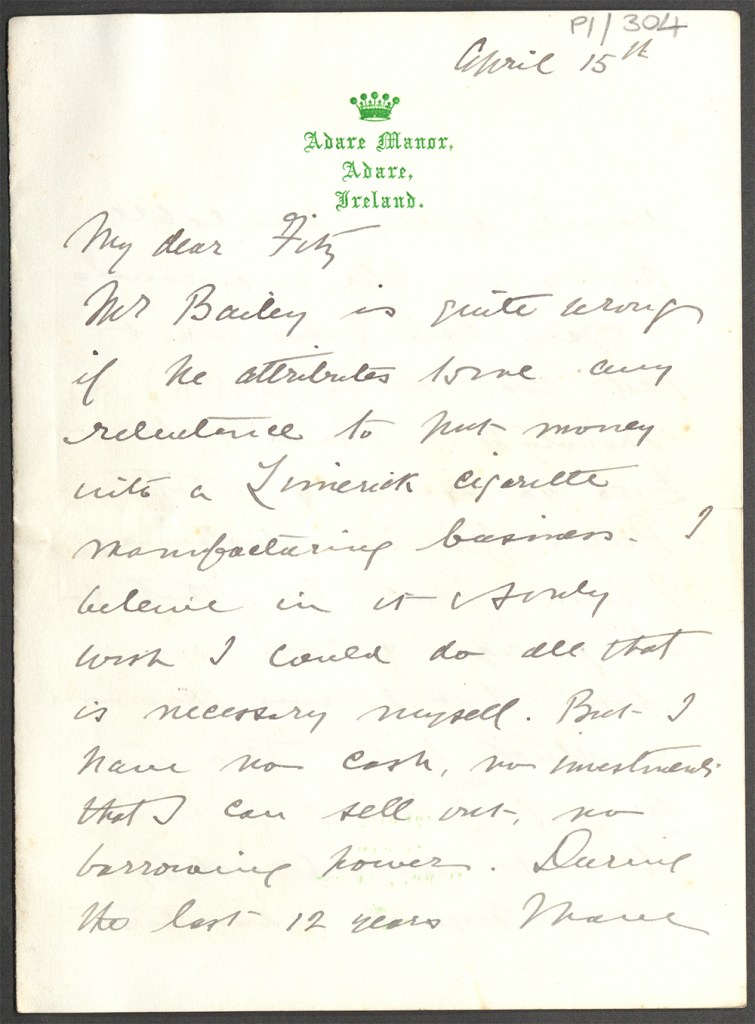 P1/304
April 15th
Adare Manor,
Adare,
Ireland.
My dear Fitz
Mr Bailey is quite wrong
if he attributes to me any
reluctance to put money
into a Limerick cigarette
manufacturing business. I
believe in it & only
wish I could do all that
is necessary myself. But I
have no cash, no investments
that I can sell out, no
borrowing power. During
the last 12 years I have